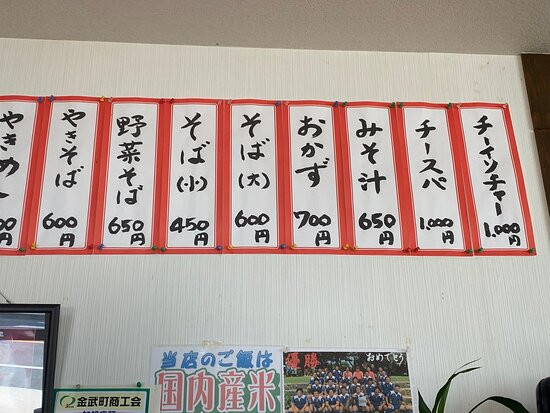 チーイソチャー
1,000円
チースパ
1,000円
みそ汁
650円
おかず
700円
そば(大)
600円
そば(小)
450円
野菜そば
650円
やきそば
600円
やきめし
00円
当店のご飯は
国内産米
優勝
おめでとう
金武町商工会